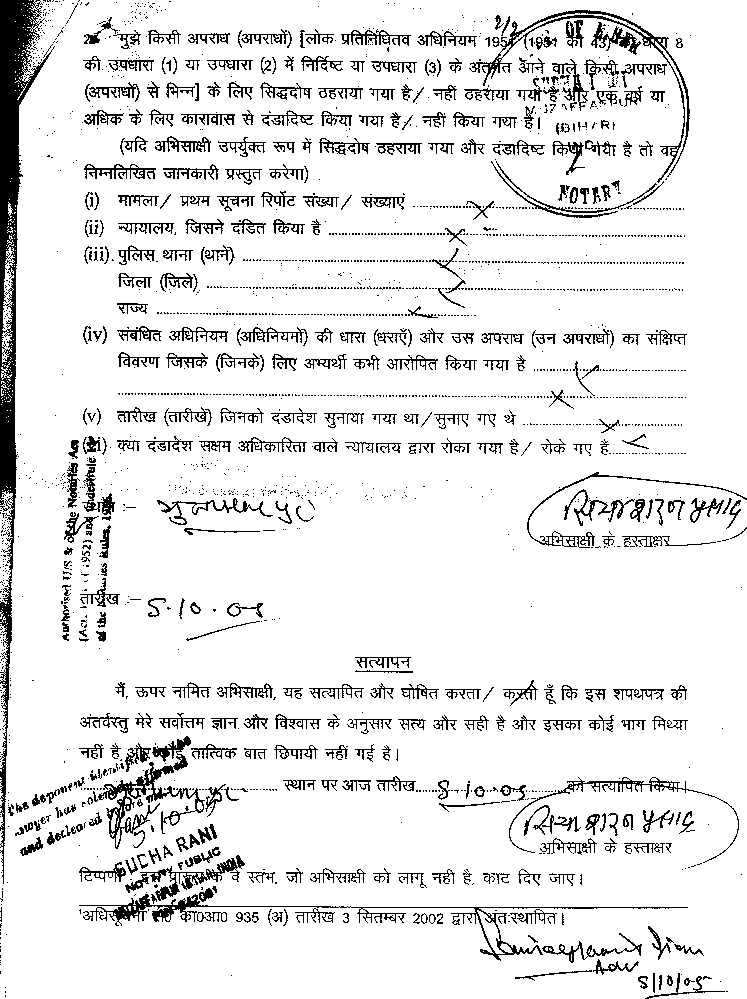 2/2
2. मुझे किसी अपराध (अपराधों) [लोक प्रतिनिधितव अधिनियम 1951 (1951 का 43) की धारा 8
की उपधारा (1) या उपधारा (2) में निर्दिष्ट या उपधारा (3) के अंतर्गत आने वाले किसी अपराध
(अपराधों) से भिन्न] के लिए सिद्धदोष ठहराया गया है/ नहीं ठहराया गया है और एक वर्ष या
अधिक के लिए कारावास से दंडादिष्ट किया गया है/ नहीं किया गया है।
(BIHAR)
(यदि अभिसाक्षी उपर्युक्त रूप में सिद्धदोष ठहराया गया और दंडादिष्ट किया गया है तो वह
निम्नलिखित जानकारी प्रस्तुत करेगा)
NOTARY
(i) मामला/ प्रथम सूचना रिर्पोट संख्या/ संख्याएं
(ii) न्यायालय, जिसने दंडित किया है
(iii) पुलिस थाना (थानें)
जिला (जिले)
राज्य
(iv) संबंधित अधिनियम (अधिनियमों) की धारा (धराएँ) और उस अपराध (उन अपराधों) का संक्षिप्त
विवरण जिसके (जिनके) लिए अभ्यर्थी कभी आरोपित किया गया है
(v) तारीख (तारीखें) जिनको दंडादेश सुनाया गया था/सुनाए गए थे
(vi) क्या दंडादेश सक्षम अधिकारिता वाले न्यायालय द्वारा रोका गया है/ रोके गए हैं
Authorised U/S 8 of the Notaries Act
सियाशरण प्रसाद
अभिसाक्षी के हस्ताक्षर
तारीख :- 5.10.05
सत्यापन
मैं, ऊपर नामित अभिसाक्षी, यह सत्यापित और घोषित करता/ करती हूँ कि इस शपथपत्र की
अंतर्वस्तु मेरे सर्वोत्तम ज्ञान और विश्वास के अनुसार सत्य और सही है और इसका कोई भाग मिथ्या
नहीं है और कोई तात्विक बात छिपायी नहीं गई है।
स्थान पर आज तारीख 5.10.05 को सत्यापित किया।
The deponent identified by
and declared before me
5.10.05
सियाशरण प्रसाद
अभिसाक्षी के हस्ताक्षर
SUCHA RANI
NOTARY PUBLIC
टिप्पणी इस प्रारूप के वे स्तंभ, जो अभिसाक्षी को लागू नही है, काट दिए जाए।
अधिसूचना सं0 का0आ0 935 (अ) तारीख 3 सितम्बर 2002 द्वारा अंतःस्थापित।
Adv
5/10/05